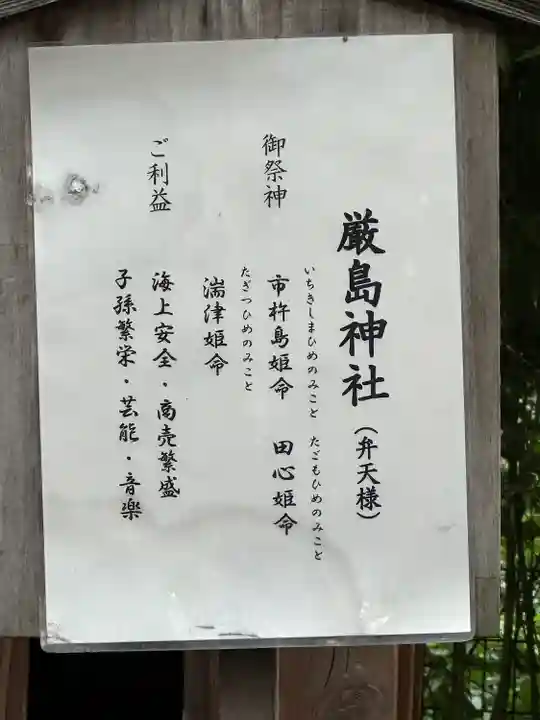 厳島神社(弁天様)
御祭神
いちきしまひめのみこと たごもひめのみこと
市杵島姫命 田心姫命
たぎつひめのみこと
湍津姫命
ご利益
海上安全・商売繁盛
子孫繁栄・芸能・音楽